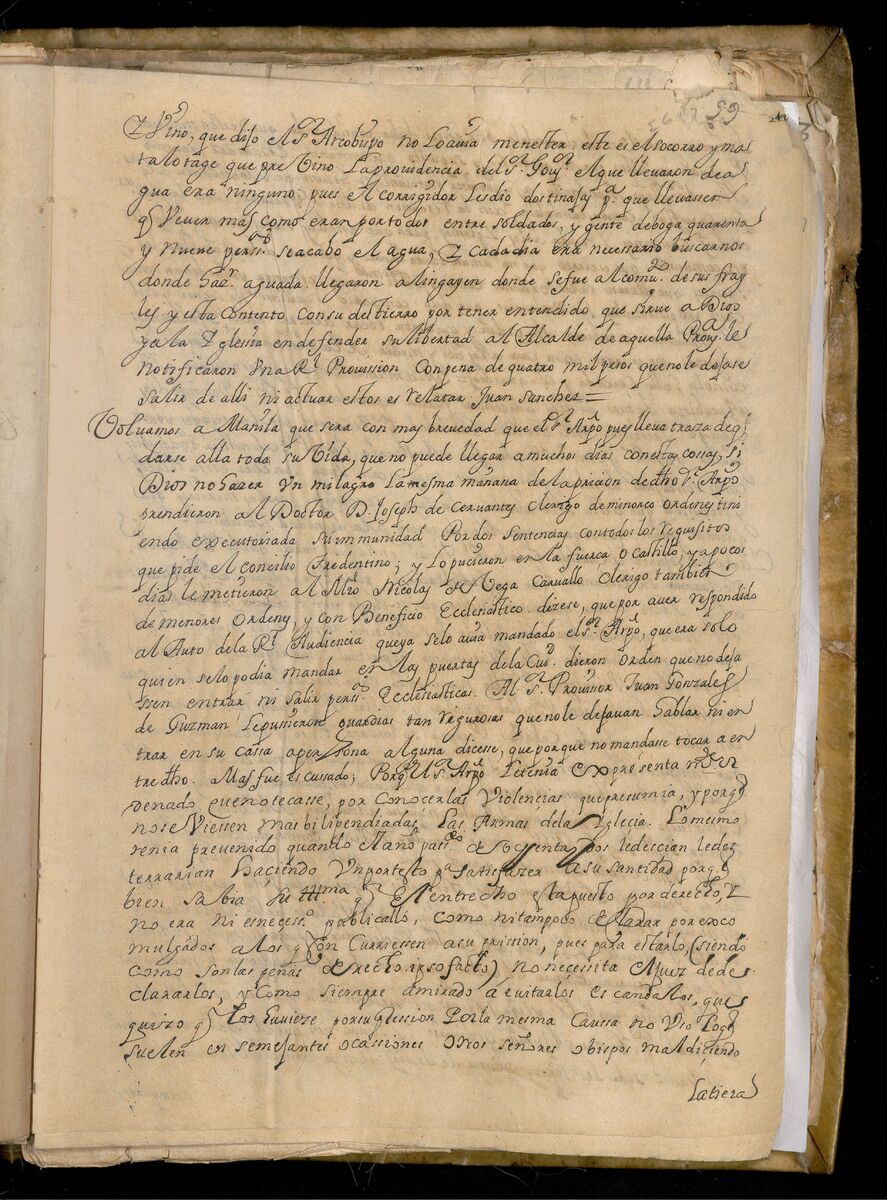 59
Y Vino, que dijo el Sor Arcobispo no lo auia menester. este es el socorro y ma
talotage que preVino La prouidencia del Sor Gouor el que lleuaron de a
gua era ninguno: pues el corrigidor les dio dos tinajas pa que lleuassen
q Veuer mas como eran por todos entre soldados, y gente de boga quarenta
y nueue persas se acabo el agua, Y cada dia era necessario buscarnos
donde hazr aguada. llegaron a lingayen donde se fue al comto de sus fray
les y esta contento con su destierro por tener entendido que sirue a Dios
y a la Yglessia en defender su libertad al Alcalde de aquella Proua le
notificaron Vna Rl Prouission con pena de quatro mil pesos que no le dejase
salir de alli ni actuar esto es relatar Juan Sanchez =
Voluamos a Manila que sera con mas breuedad que el Sr Arpo pues lleua traza de q
darse alla toda su Vida, que no puede llegar a muchos dias con estas cossas, si
Dios no hazer Vn milagro La mesma mañana de la pricion de dho Sr Arpo
prendieron al Doctor D. Joseph de Ceruantes clerigo de minores ordenes tini
endo executoriada su immunidad Por dos sentencias con todos los requisitos
que pide el concilio Tredentino; y Lo pucieron en la fuerca, o Castillo, y a pocos
dias le metieron al Mro Nicolas de Vega Caruallo clerigo tambien
de menores ordenes, y con Beneficio Ecclesiastico. dizese, que por auer respondido
al Auto de la Rl Audiencia que ya se lo auia mandado el sr Arpo, que era solo
quien se lo podia mandar en las puertas de la Ciud dieron orden que no deja
ssen entrar ni salir persas Ecclesiasticas. Al Sr Prouissor Juan Gonzales
de Guzman Le pussieron guardias tan rigurosas que no le dejauan hablar ni en
trar en su cassa a persona alguna dicesse, que porque no mandasse tocar a en
tredho. Mas fue escussado; Porq Us Arpo Le tenia expresamte or
denado que no tocasse, por conocer las Violencias que presumia, y porq
no se Viessen mas bilipendiadas Las Armas de la Yglecia. Lo mesmo
tenia preuenido quando el año passdo de ochenta y dos le descian le des
terrarian haciendo Vn portesto pa satisfazer a su santidad porq
bien sabia su Illma q el entredho esta puesto por derecho, Y
no era ni es necesso publicallo, como ni tampoco declarar por exco
mulgados a los q con curriessen a su prission, pues para estarlo, (siendo
como son las penas derecho ipso facto) no necesita el juez de de
clararlos, y como siempre a mirado a euitarlos escandalos, que
quizo q los huuieze por su
Por la mesma caussa no Vso Lo q
suelen en semejantes ocassiones otros señores obispos maldiciendo
La tiera